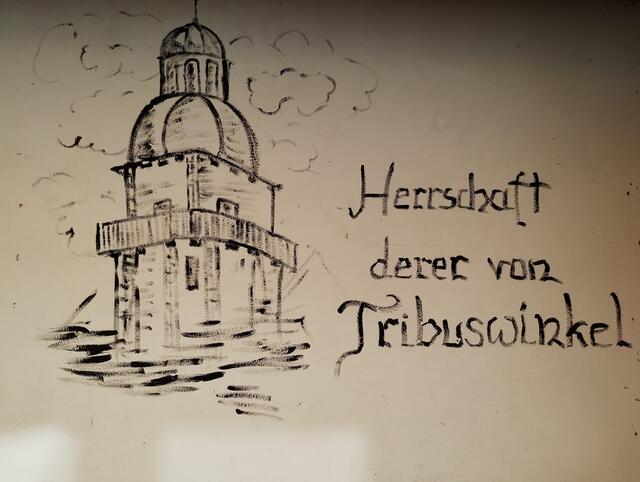 Herrschaft
derer von
Tribuswinkel